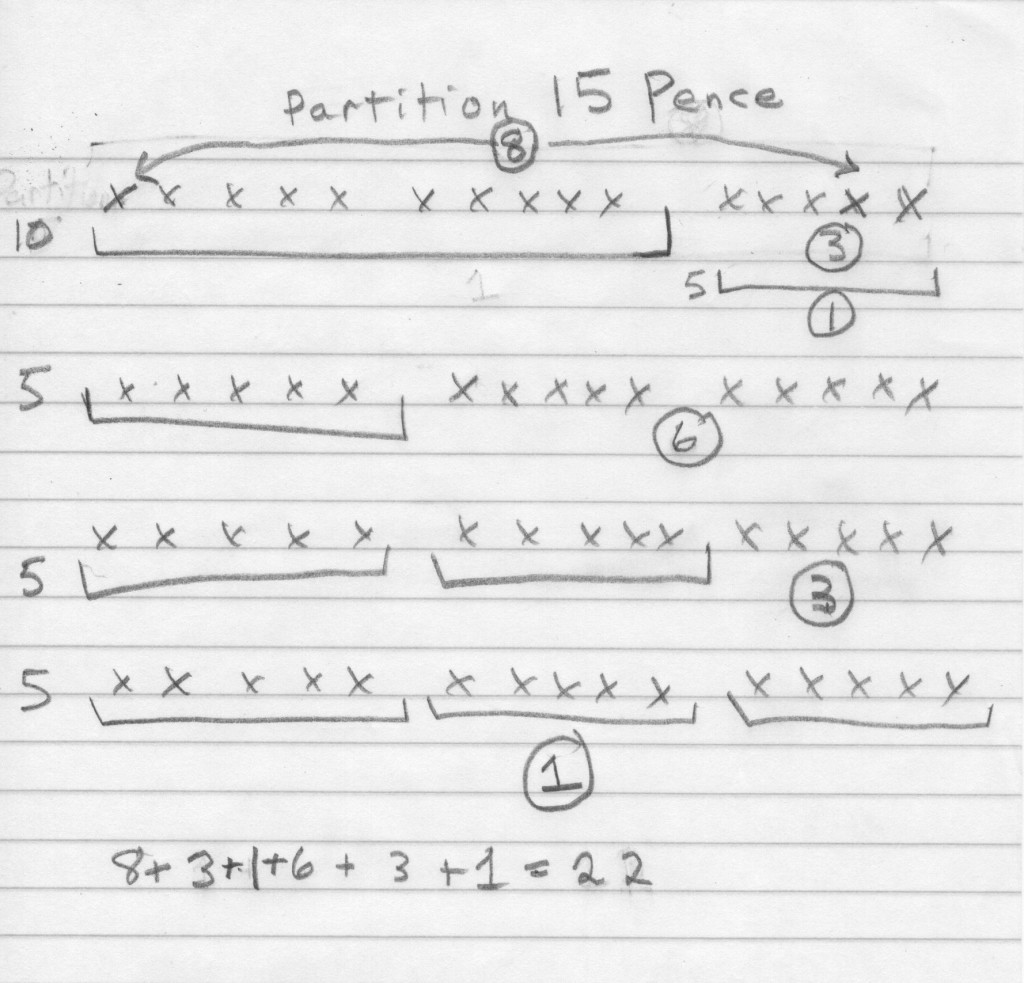 Partition 15 Pence
8
x x x x x x x x x x x x x x x
10 3
5
1
5 x x x x x x x x x x x x x x x
6
x x x x x x x x x x x x x x x
5 3
5 x x x x x x x x x x x x x x x
1
8+3+1+6+3+1=22